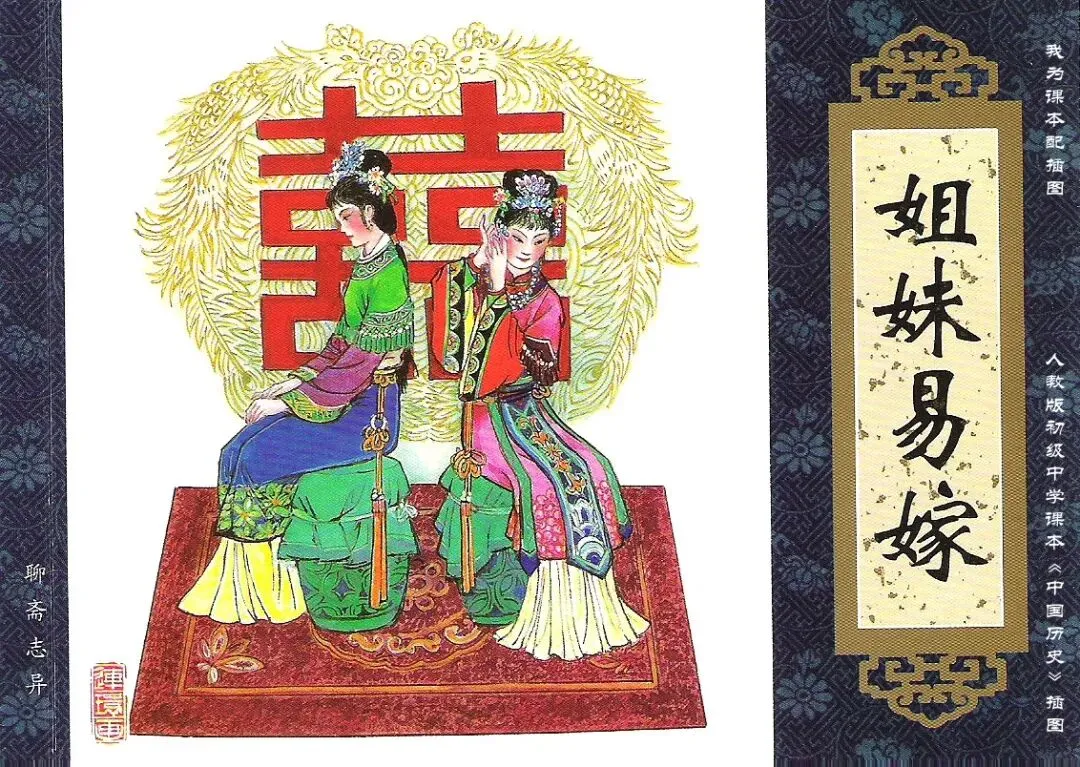 我为课本配插图
人教版初级中学课本《中国历史》插图
姐妹易嫁
囍
聊斋志异
连环画